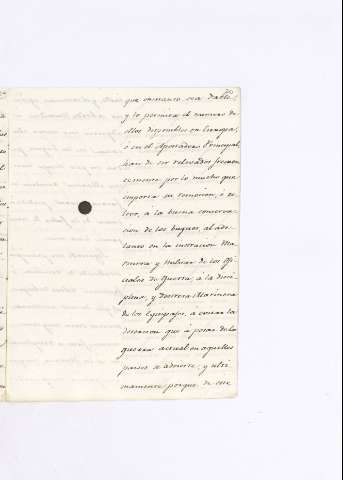 que en quanto sea dable,
y lo permita el numero de
ellos disponibles en Europa,
ó en el Apostadero Principal,
han de ser relevados frecuen
temente por lo mucho que
importa su remocion, ó re
levo, á la buena conserva
cion de los buques, al ade
lanto en la instruccion Ma
rinera y Militar de los Ofi
ciales de Guerra, á la disci
plina, y destreza Marinera
de los Equipages, á evitar la
desercion que á pesar de la
guerra actual en aquellos
paises se advierte, y ulti
mamente, porque de este